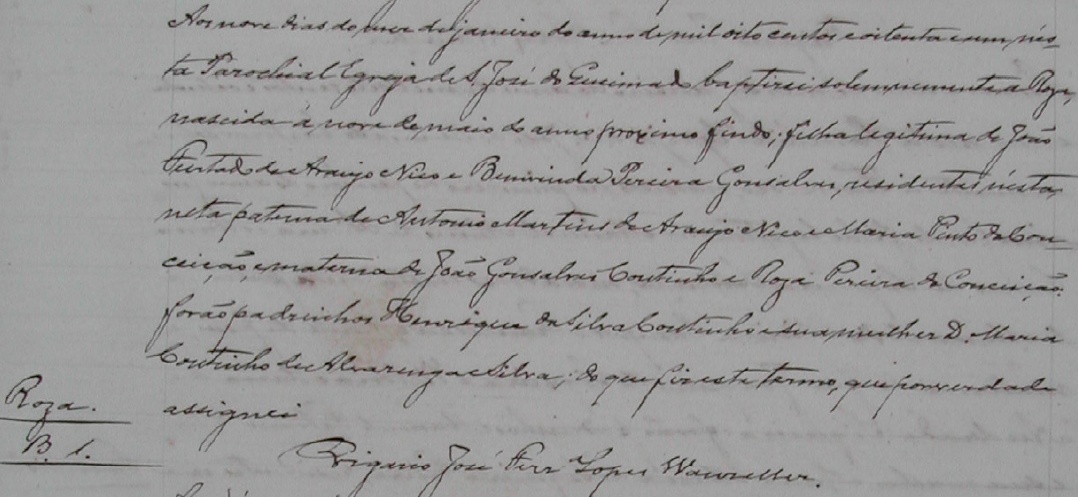 Aos nove dias do mez de janeiro do anno de mil oito centos e oitenta e um, nes-
ta Parochial Egreja de S. José do Queimado baptisei solemnemente a Roza,
nascida á nove de maio do anno proximo findo; filha legitima de João
Furtado de Araujo Nico e Benvinda Pereira Gonsalves, residentes nésta,
neta paterna de Antonio Martins de Araujo Nico e Maria Pinto da Con-
ceição, e materna de João Gonsalves Coutinho e Roza Pereira da Conceição.
forão padrinhos Henrique da Silva Coutinho e sua mulher D. Maria
Coutinho de Alvarenga e Silva; do que fiz este termo, que por verdade
assignei
Roza.
B. 1.
Vigario José Ferr Lopes